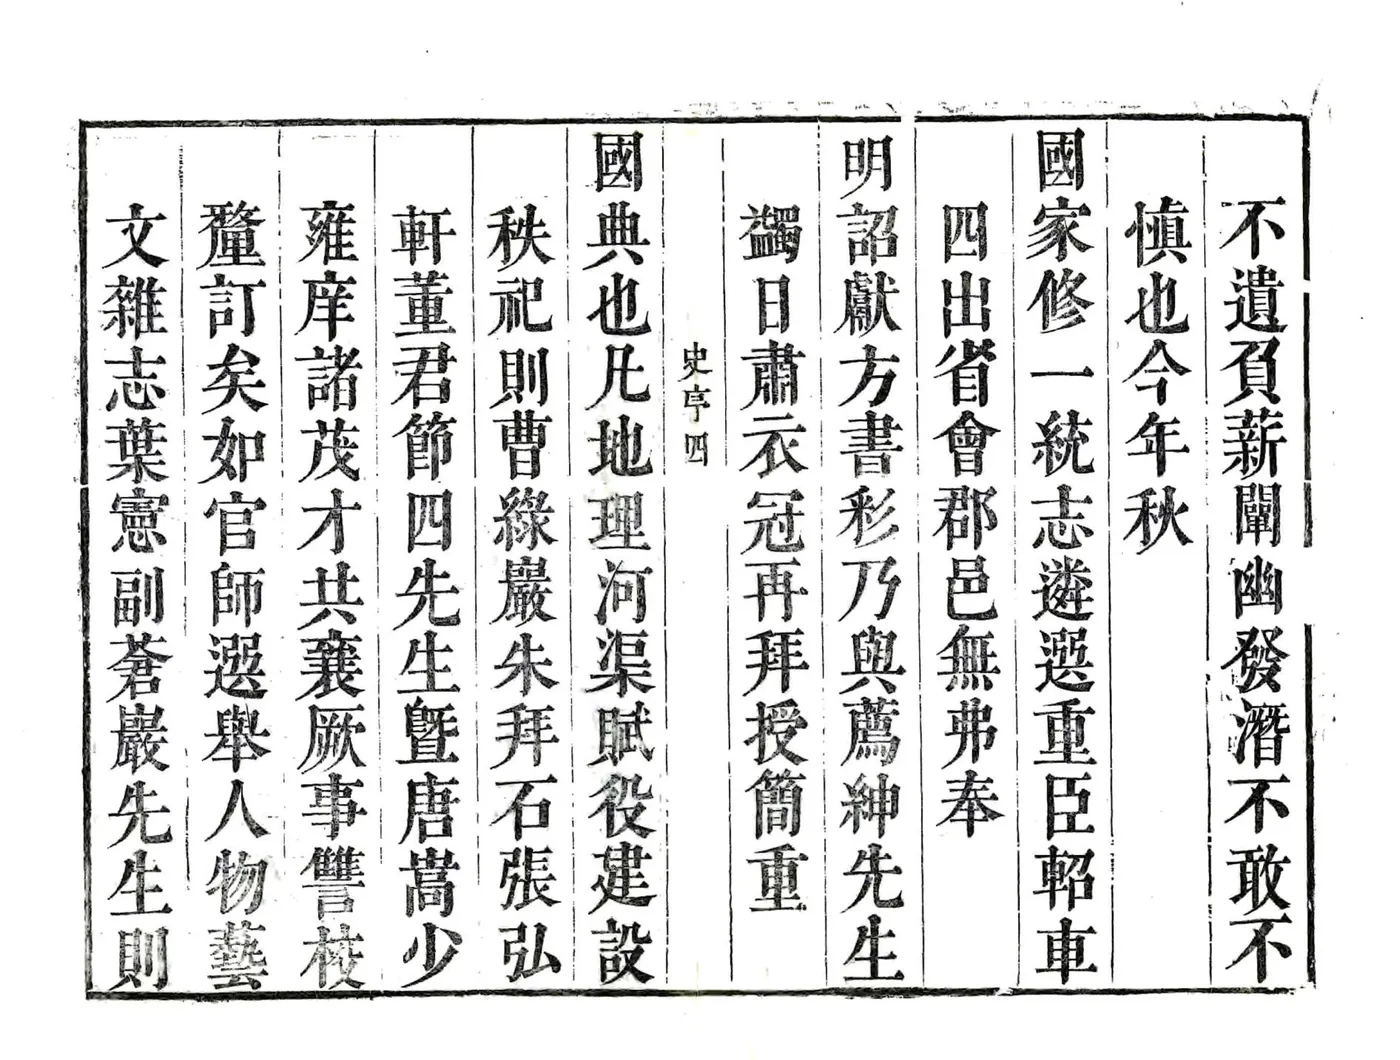 不遺負薪闡幽發潛不敢不
慎也今年秋
國家修一統志遴選重臣軺車
四出省會郡邑無弗奉
明詔獻方書彩乃與薦紳先生
蠲日肅衣冠再拜授簡重
史亭四
國典也凡地理河渠賦役建設
秩祀則曹綠巖朱拜石張弘
軒董君節四先生曁唐嵩少
雍庠諸茂才共襄厥事讐校
釐訂矣如官師選舉人物藝
文雜志葉憲副蒼巖先生則